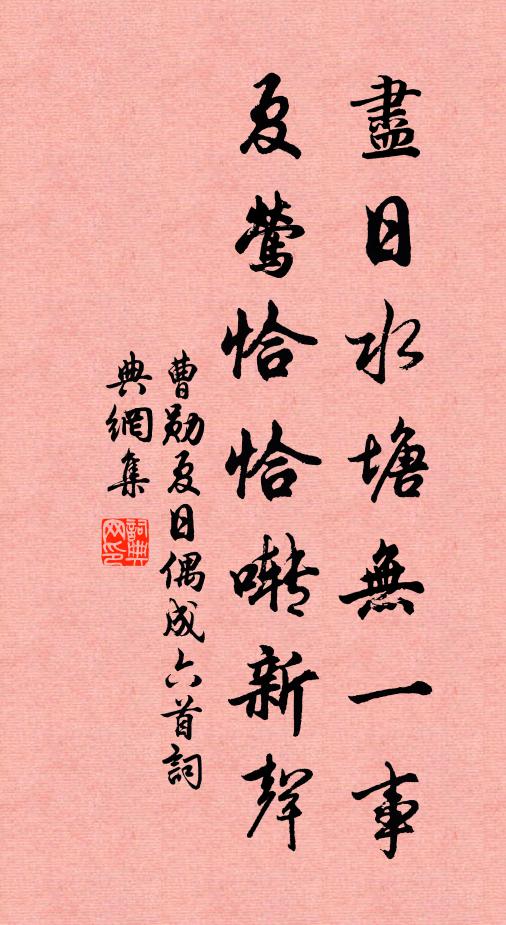 盡日水塘無一事
夏鶯恰恰囀新聲
曹勛夏日偶成六首詞
典網集
詞典網印